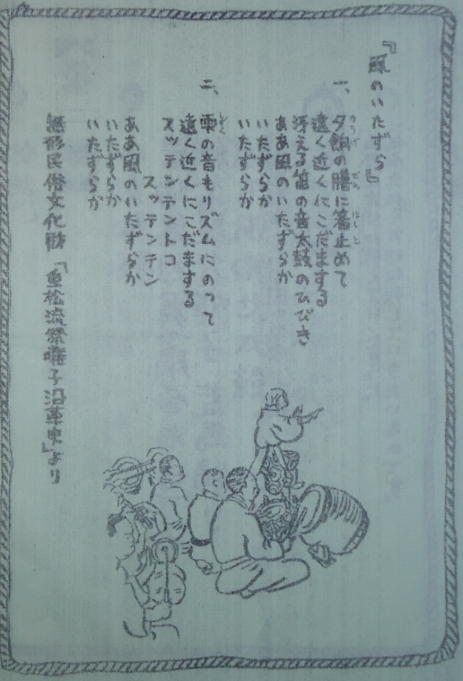 『風のいたずら』
一、
夕餉の膳に箸止めて
遠く近くにこだまする
冴える笛の音太鼓のひびき
ああ風のいたずらか
いたずらか
いたずらか
二、
雫の音もリズムにのって
遠く近くにこだまする
スッテンテントコ
スッテンテン
ああ風のいたずらか
いたずらか
いたずらか
無形民俗文化財「重松流祭囃子沿革史」より